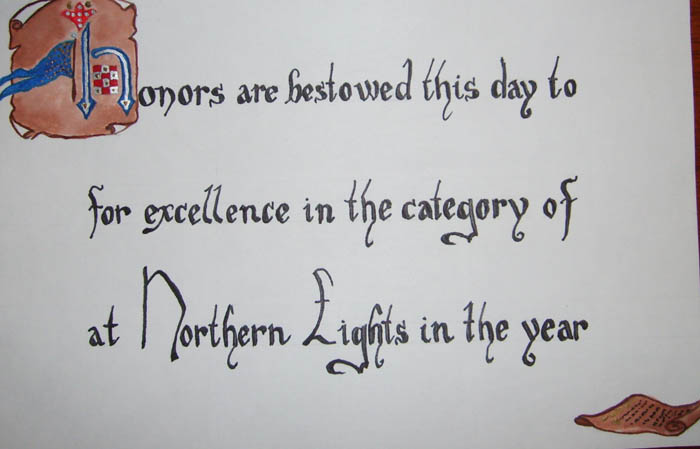 honors are bestowed this day to
for excellence in the category of
at Northern Lights in the year